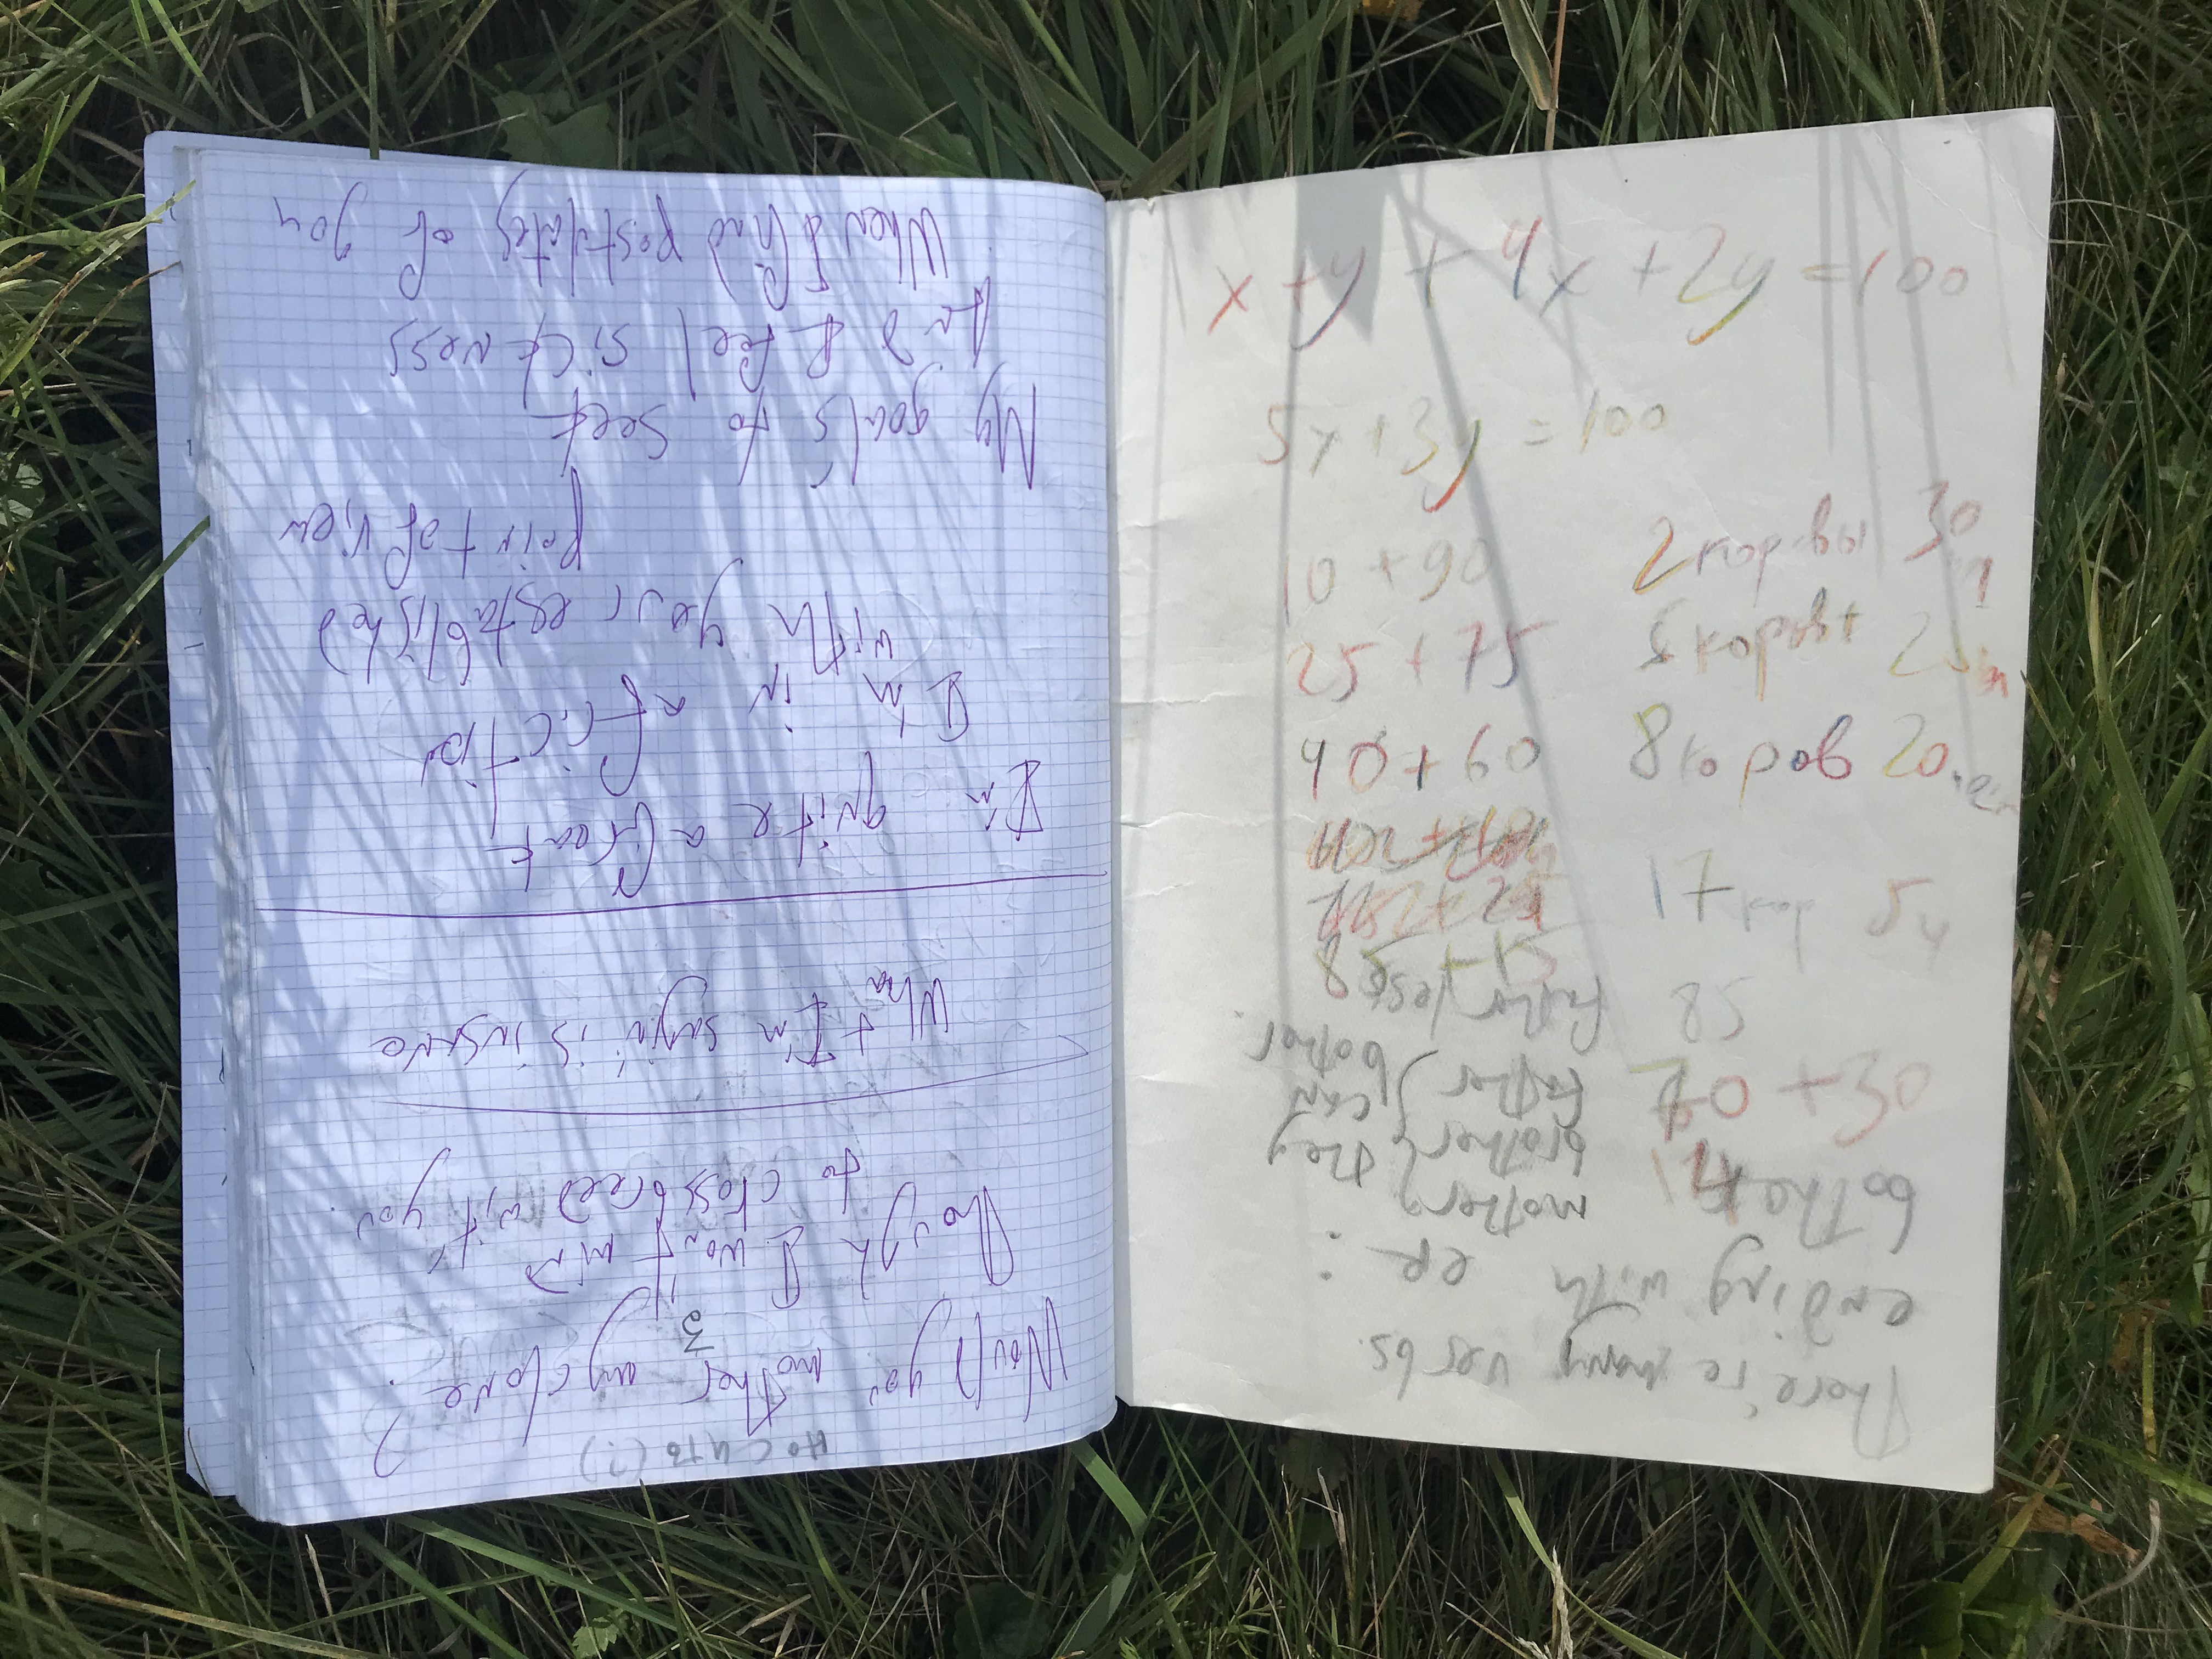 There're many verbs
ending with eR:
bother
mother
brother
father
they
can
bother.
fatherless
70 + 30
85
85 + 15
17 кор 54
40 + 60
8 коров 20
25 + 75
10 + 90
30
5x + 3y = 100
x + y + 4x + 2y = 100
носить (?)
Would you mother my clone?
3
Though I won't mind
to crossbreed wit' you.
What I'm sayin' is insane
I'm quite a freak,
I'm in a friction
with your established
point of view
My goal's to seek,
And I feel sickness
When I find postulates of you